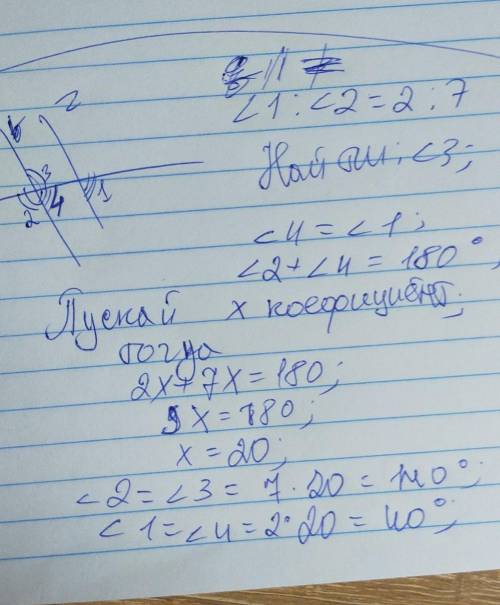 ∠1 : ∠2 = 2 : 7
Найти: ∠3;
3
2
4
1
∠4 = ∠1;
∠2 + ∠4 = 180°;
Пускай x коефициент;
тогда
2x + 7x = 180;
9x = 180;
x = 20;
∠2 = ∠3 = 7 · 20 = 140°;
∠1 = ∠4 = 2 · 20 = 40°;